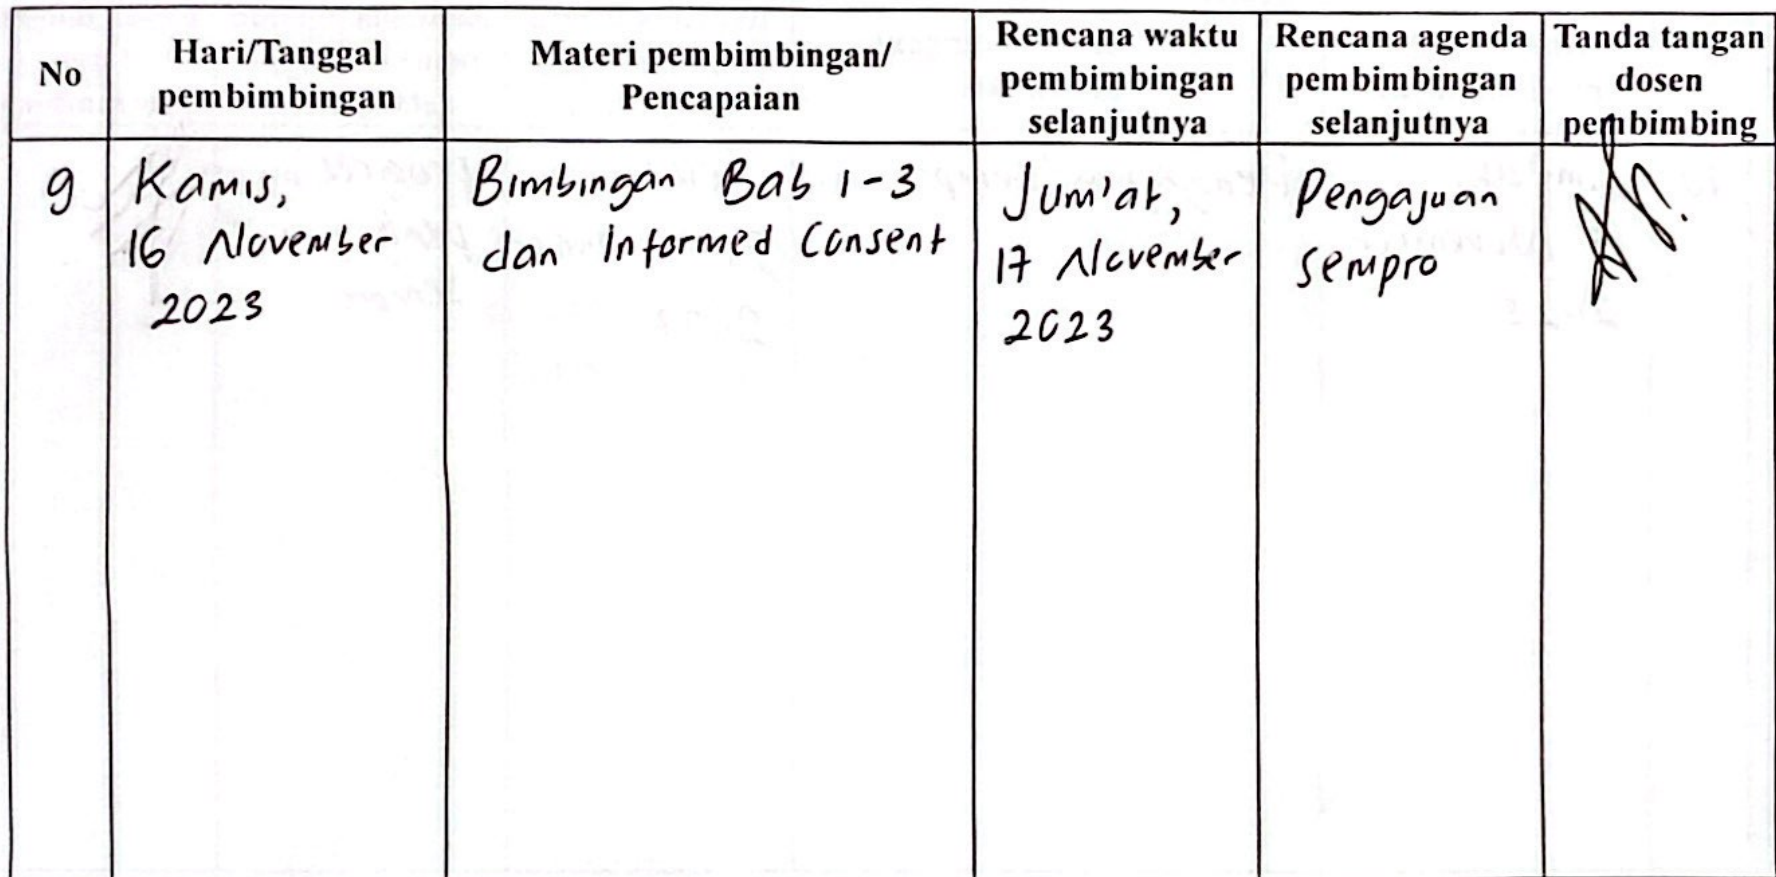 No
Hari/Tanggal
pembimbingan
Materi pembimbingan/
Pencapaian
Rencana waktu
pembimbingan
selanjutnya
Rencana agenda
pembimbingan
selanjutnya
Tanda tangan
dosen
pembimbing
9
Kamis,
16 November
2023
Bimbingan Bab 1-3
dan Informed Consent
Jum'at,
17 November
2023
Pengajuan
sempro